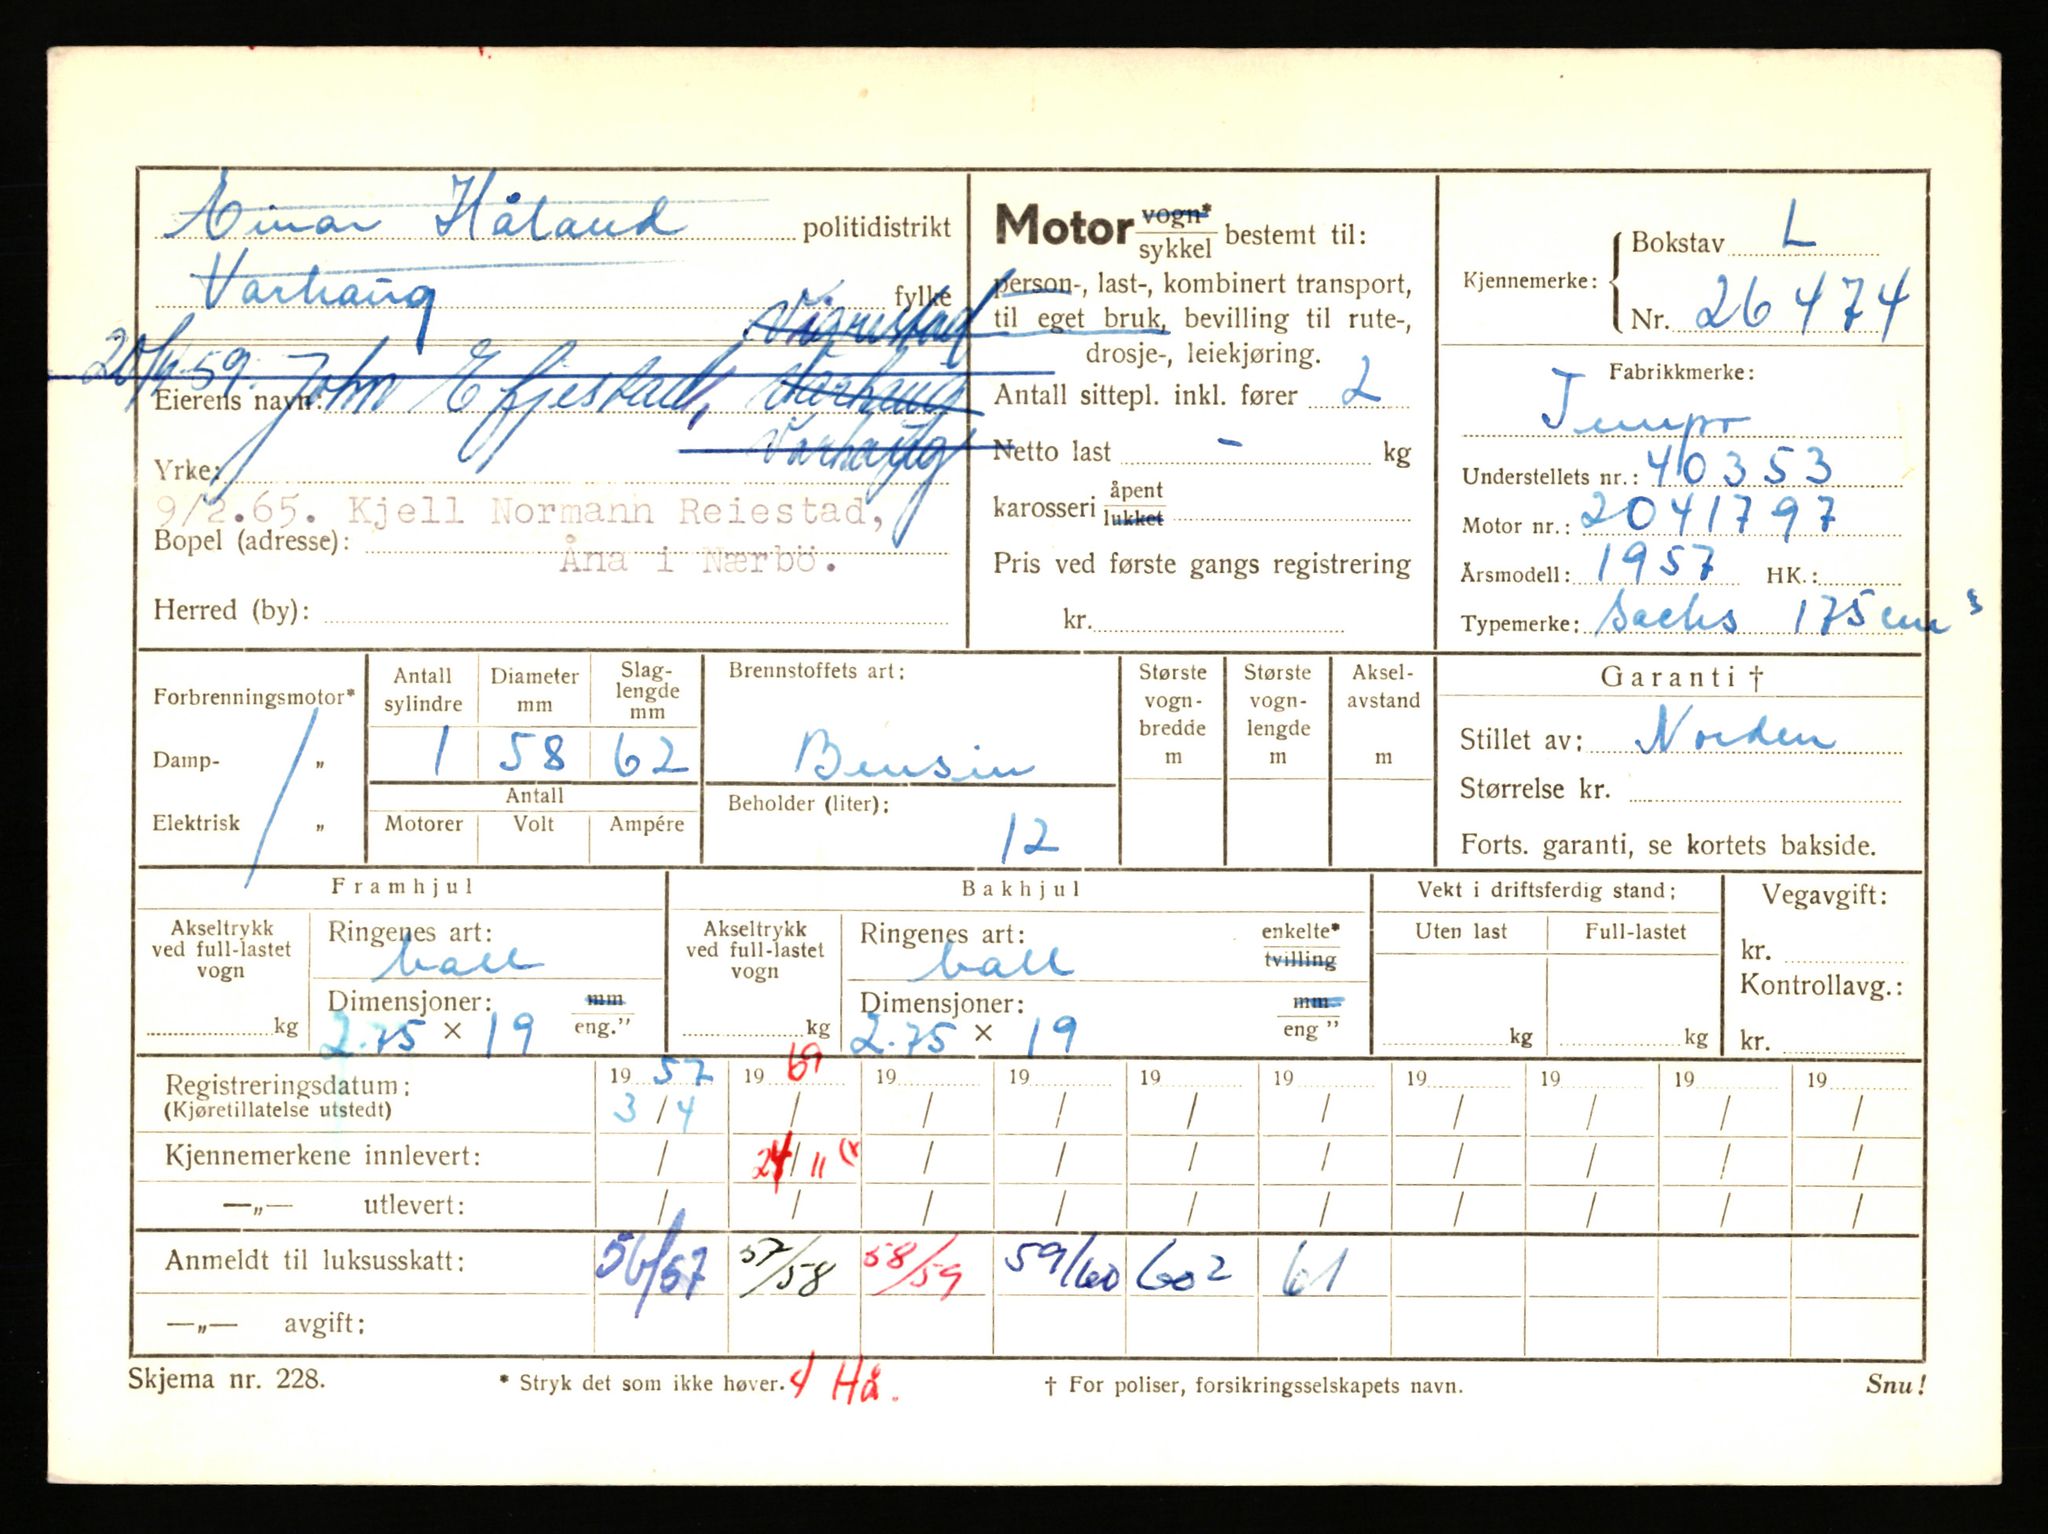 Einar Håland politidistrikt
Varhaug fylke
Vigrestad
20/4-59. John E Efjestad, Varhaug
Eierens navn:
Varhaug
Yrke:
9/2.65. Kjell Normann Reiestad,
Bopel (adresse): Åna i Nærbö.
Herred (by):
Motor vogn* / sykkel bestemt til:
person-, last-, kombinert transport,
til eget bruk, bevilling til rute-,
drosje-, leiekjøring.
Antall sittepl. inkl. fører 2
Netto last - kg
karosseri åpent / lukket
Pris ved første gangs registrering
kr.
Kjennemerke: Bokstav L
Nr. 26474
Fabrikkmerke:
Tempo
Understellets nr.: 40353
Motor nr.: 2041797
Årsmodell: 1957 HK.:
Typemerke: Sachs 175 cm³
Forbrenningsmotor*
Damp- „
Elektrisk „
Antall sylindre Diameter mm Slaglengde mm
1 58 62
Antall
Motorer Volt Ampére
Brennstoffets art:
Bensin
Beholder (liter):
12
Største vognbredde m
Største vognlengde m
Akselavstand m
Garanti †
Stillet av: Norden
Størrelse kr.
Forts. garanti, se kortets bakside.
Framhjul
Akseltrykk ved full-lastet vogn
kg
Ringenes art:
ball
Dimensjoner: mm / eng."
2.75 × 19
Bakhjul
Akseltrykk ved full-lastet vogn
kg
Ringenes art: enkelte* / tvilling
ball
Dimensjoner: mm / eng "
2.75 × 19
Vekt i driftsferdig stand;
Uten last Full-lastet
kg kg
Vegavgift:
kr.
Kontrollavg.:
kr.
Registreringsdatum: 19 57 19 69 19 19 19 19 19 19 19 19
(Kjøretillatelse utstedt) 3 / 4 / / / / / / / / /
Kjennemerkene innlevert: / 24/11 / / / / / / / /
—„— utlevert: / / / / / / / / / /
Anmeldt til luksusskatt: 56/57 57/58 58/59 59/60 60² 61
—„— avgift:
Skjema nr. 228. * Stryk det som ikke høver. 4 Hå. † For poliser, forsikringsselskapets navn. Snu!